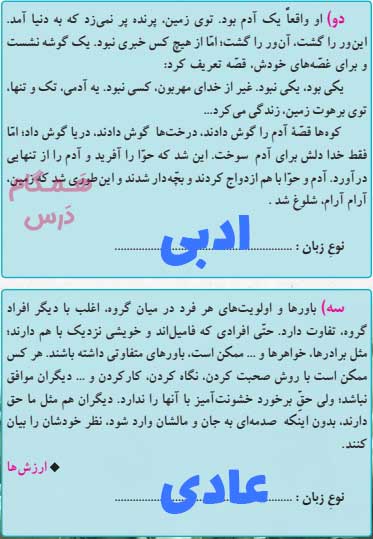 دو) او واقعاً یک آدم بود. توی زمین، پرنده پر نمی‌زد که به دنیا آمد.
این‌ور را گشت، آن‌ور را گشت؛ امّا از هیچ کس خبری نبود. یک گوشه نشست
و برای غصّه‌های خودش، قصّه تعریف کرد:
یکی بود، یکی نبود. غیر از خدای مهربون، کسی نبود. یه آدمی، تک و تنها،
توی برهوت زمین، زندگی می‌کرد...
کوه‌ها قصّهٔ آدم را گوش دادند، درخت‌ها گوش دادند، دریا گوش داد؛ امّا
فقط خدا دلش برای آدم سوخت. این شد که حوّا را آفرید و آدم را از تنهایی
درآورد. آدم و حوّا با هم ازدواج کردند و بچّه‌دار شدند و این‌طوری شد که زمین،
آرام آرام، شلوغ شد .
همگام
درس
نوع زبان : ادبی
سه) باورها و اولویت‌های هر فرد در میان گروه، اغلب با دیگر افراد
گروه، تفاوت دارد. حتّی افرادی که فامیل‌اند و خویشی نزدیک با هم دارند؛
مثل برادرها، خواهرها و ... ممکن است، باورهای متفاوتی داشته باشند. هر کس
ممکن است با روش صحبت کردن، نگاه کردن، کارکردن و ... دیگران موافق
نباشد؛ ولی حقّ برخورد خشونت‌آمیز با آنها را ندارد. دیگران هم مثل ما حق
دارند، بدون اینکه صدمه‌ای به جان و مالشان وارد شود، نظر خودشان را بیان
کنند.
◆ ارزش‌ها
نوع زبان : عادی